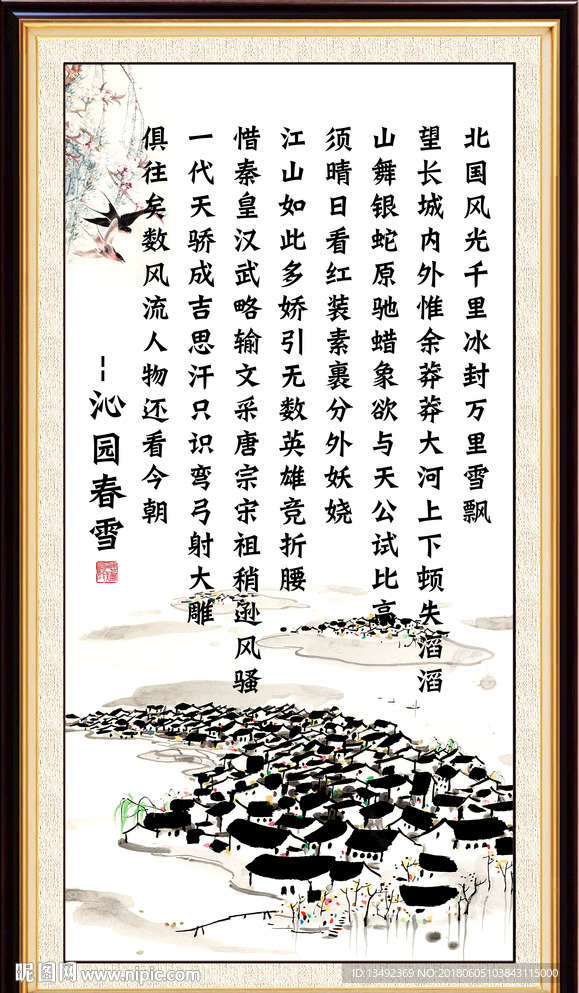 北国风光千里冰封万里雪飘
望长城内外惟余莽莽大河上下顿失滔滔
山舞银蛇原驰蜡象欲与天公试比高
须晴日看红装素裹分外妖娆
江山如此多娇引无数英雄竞折腰
惜秦皇汉武略输文采唐宗宋祖稍逊风骚
一代天骄成吉思汗只识弯弓射大雕
俱往矣数风流人物还看今朝
--沁园春雪
昵图网 www.nipic.com
ID:13492369 NO:20180605103843115000